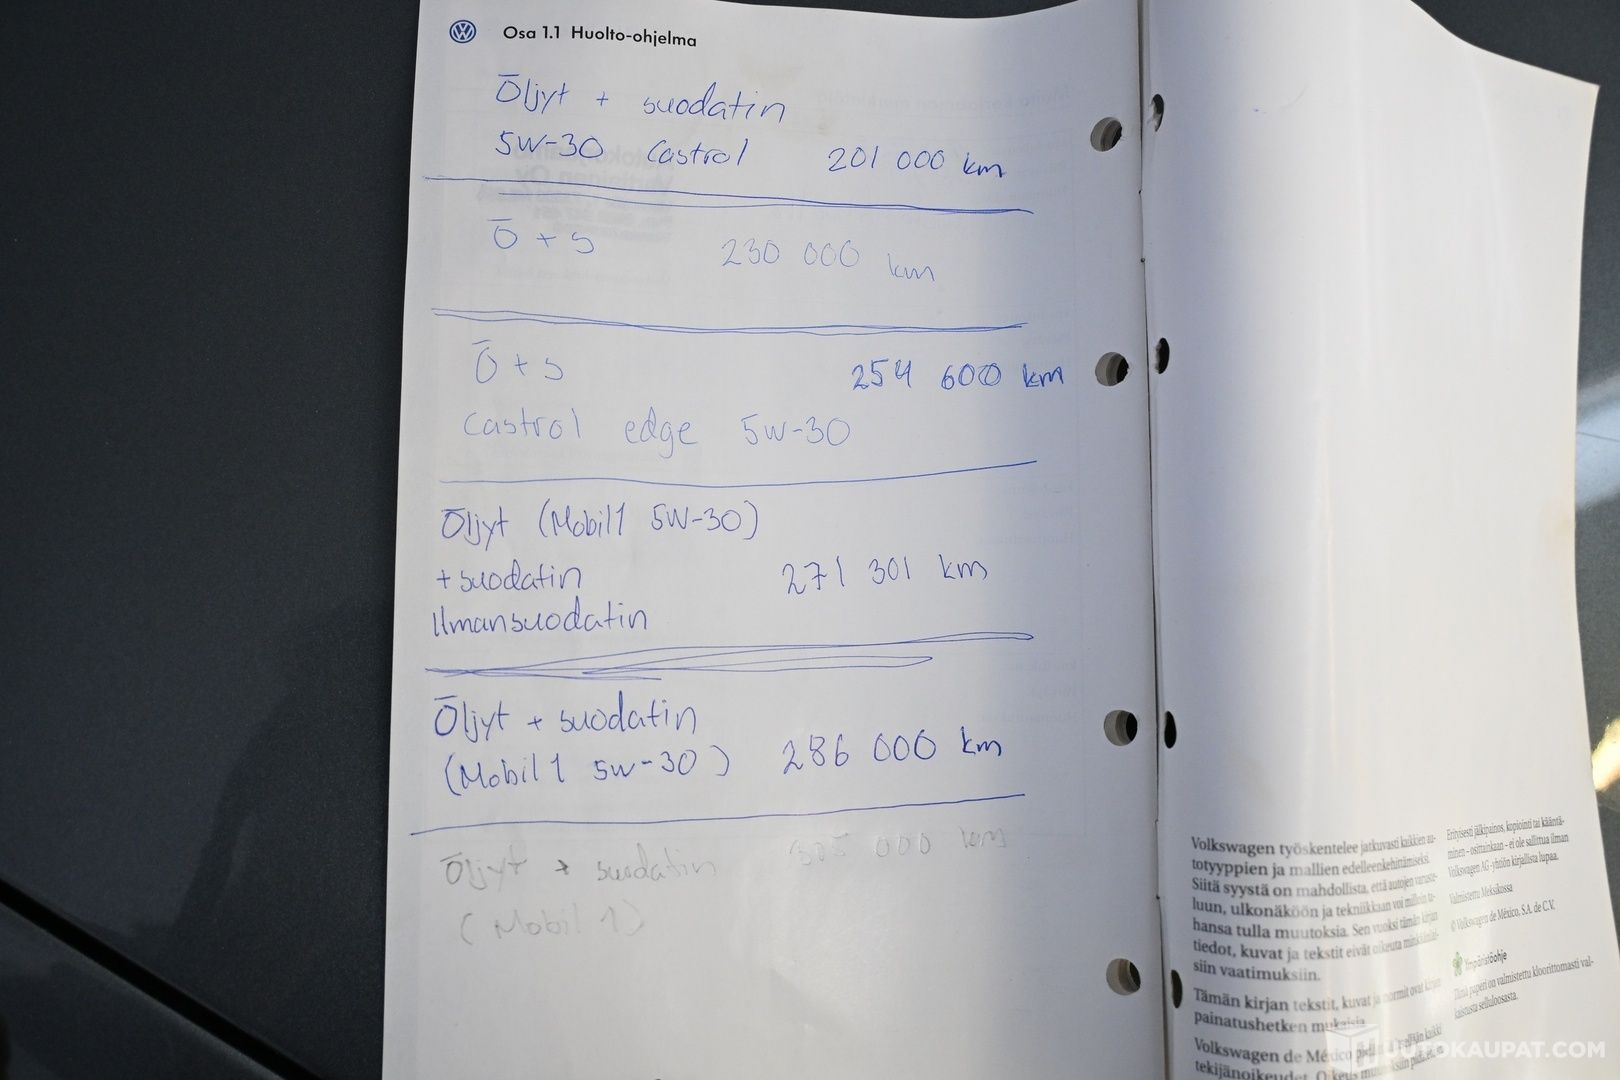 Osa 1.1 Huolto-ohjelma
Öljyt + suodatin
5W-30 Castrol 201 000 km
Ö + s 230 000 km
Ö + s 254 600 km
Castrol edge 5W-30
Öljyt (Mobil1 5W-30)
+ suodatin 271 301 km
Ilmansuodatin
Öljyt + suodatin
(Mobil 1 5W-30) 286 000 km
Öljyt + suodatin 305 000 km
(Mobil 1)
Volkswagen työskentelee jatkuvasti kaikkien au-
totyyppien ja mallien edelleenkehittämiseksi.
Siitä syystä on mahdollista, että autojen varuste-
luun, ulkonäköön ja tekniikkaan voi milloin ta-
hansa tulla muutoksia. Sen vuoksi tämän kirjan
tiedot, kuvat ja tekstit eivät oikeuta minkäänlai-
siin vaatimuksiin.
Tämän kirjan tekstit, kuvat ja normit ovat kirjan
painatushetken mukaisia.
Volkswagen de México
tekijänoikeudet.
Erityisesti jälkipainos, kopiointi tai kääntä-
minen – osittainkaan – ei ole sallittua ilman
Volkswagen AG -yhtiön kirjallista lupaa.
Valmistettu Meksikossa
© Volkswagen de México, S.A. de C.V.
Ympäristöohje
Tämä paperi on valmistettu kloorittomasti val-
kaistusta selluloosasta.
HUUTOKAUPAT.COM